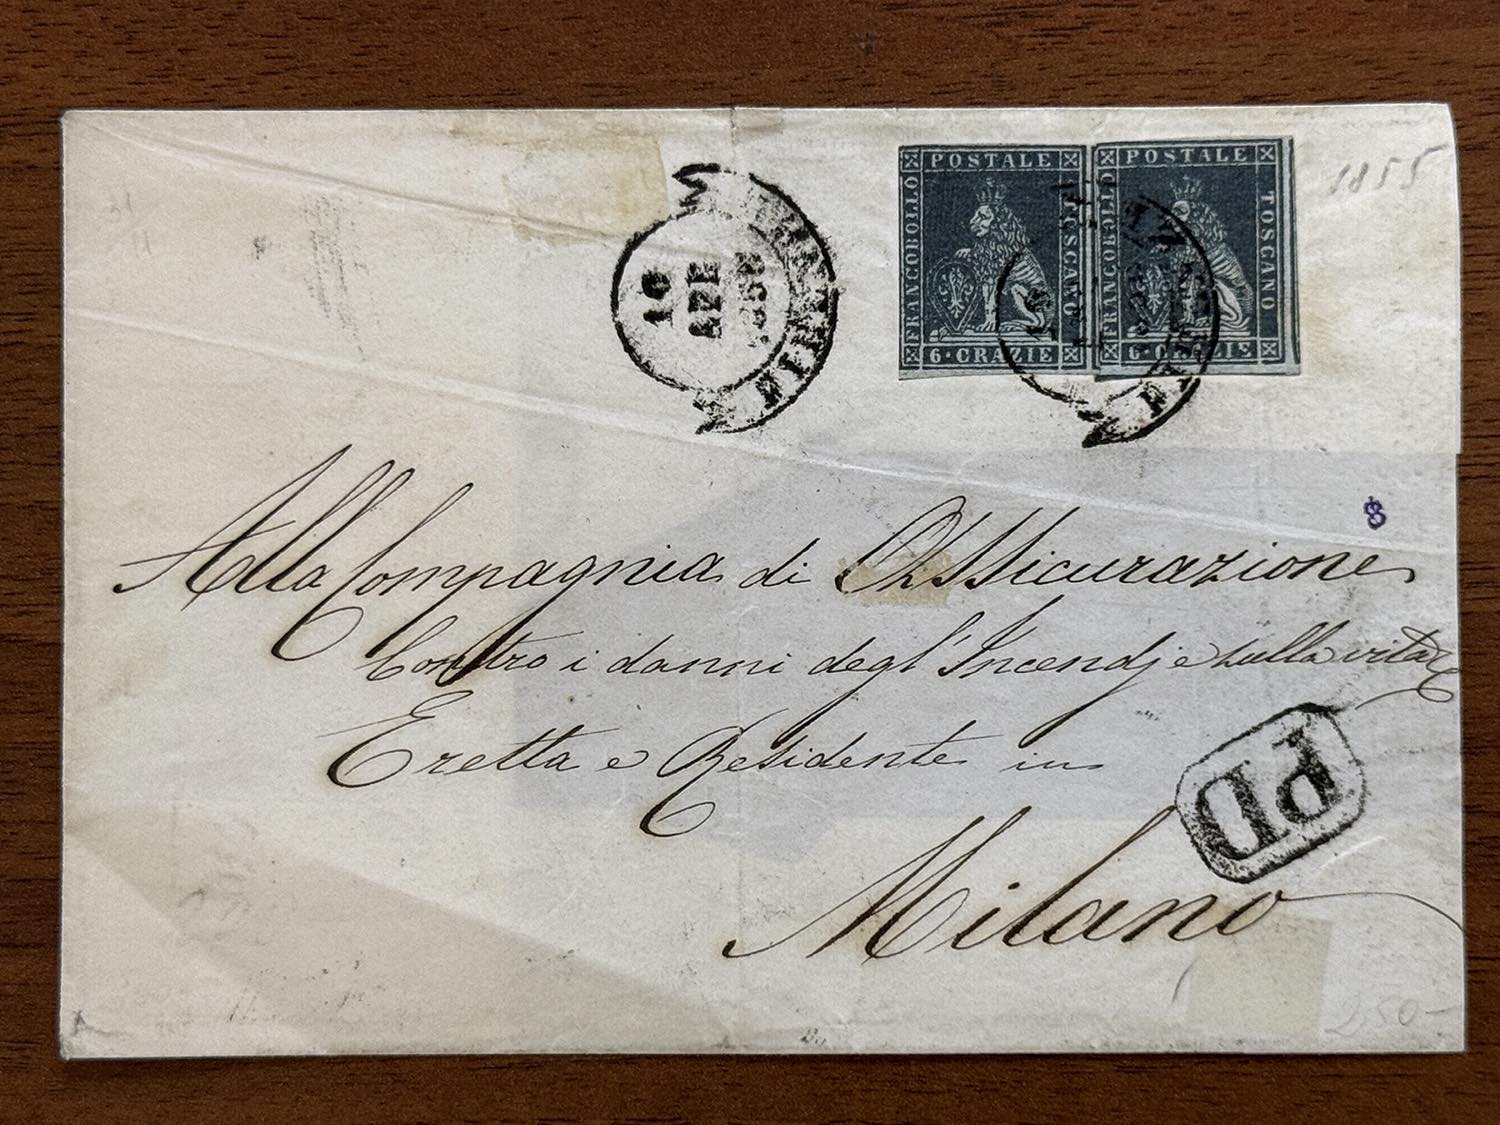 POSTALE
FRANCOBOLLO
TOSCANO
6·CRAZIE
POSTALE
FRANCOBOLLO
TOSCANO
1855
16
FIRENZE
8
Alla Compagnia di Assicurazione
Contro i danni degl'Incendj e sulla vita
Eretta e Residente in
Milano
PD
250-